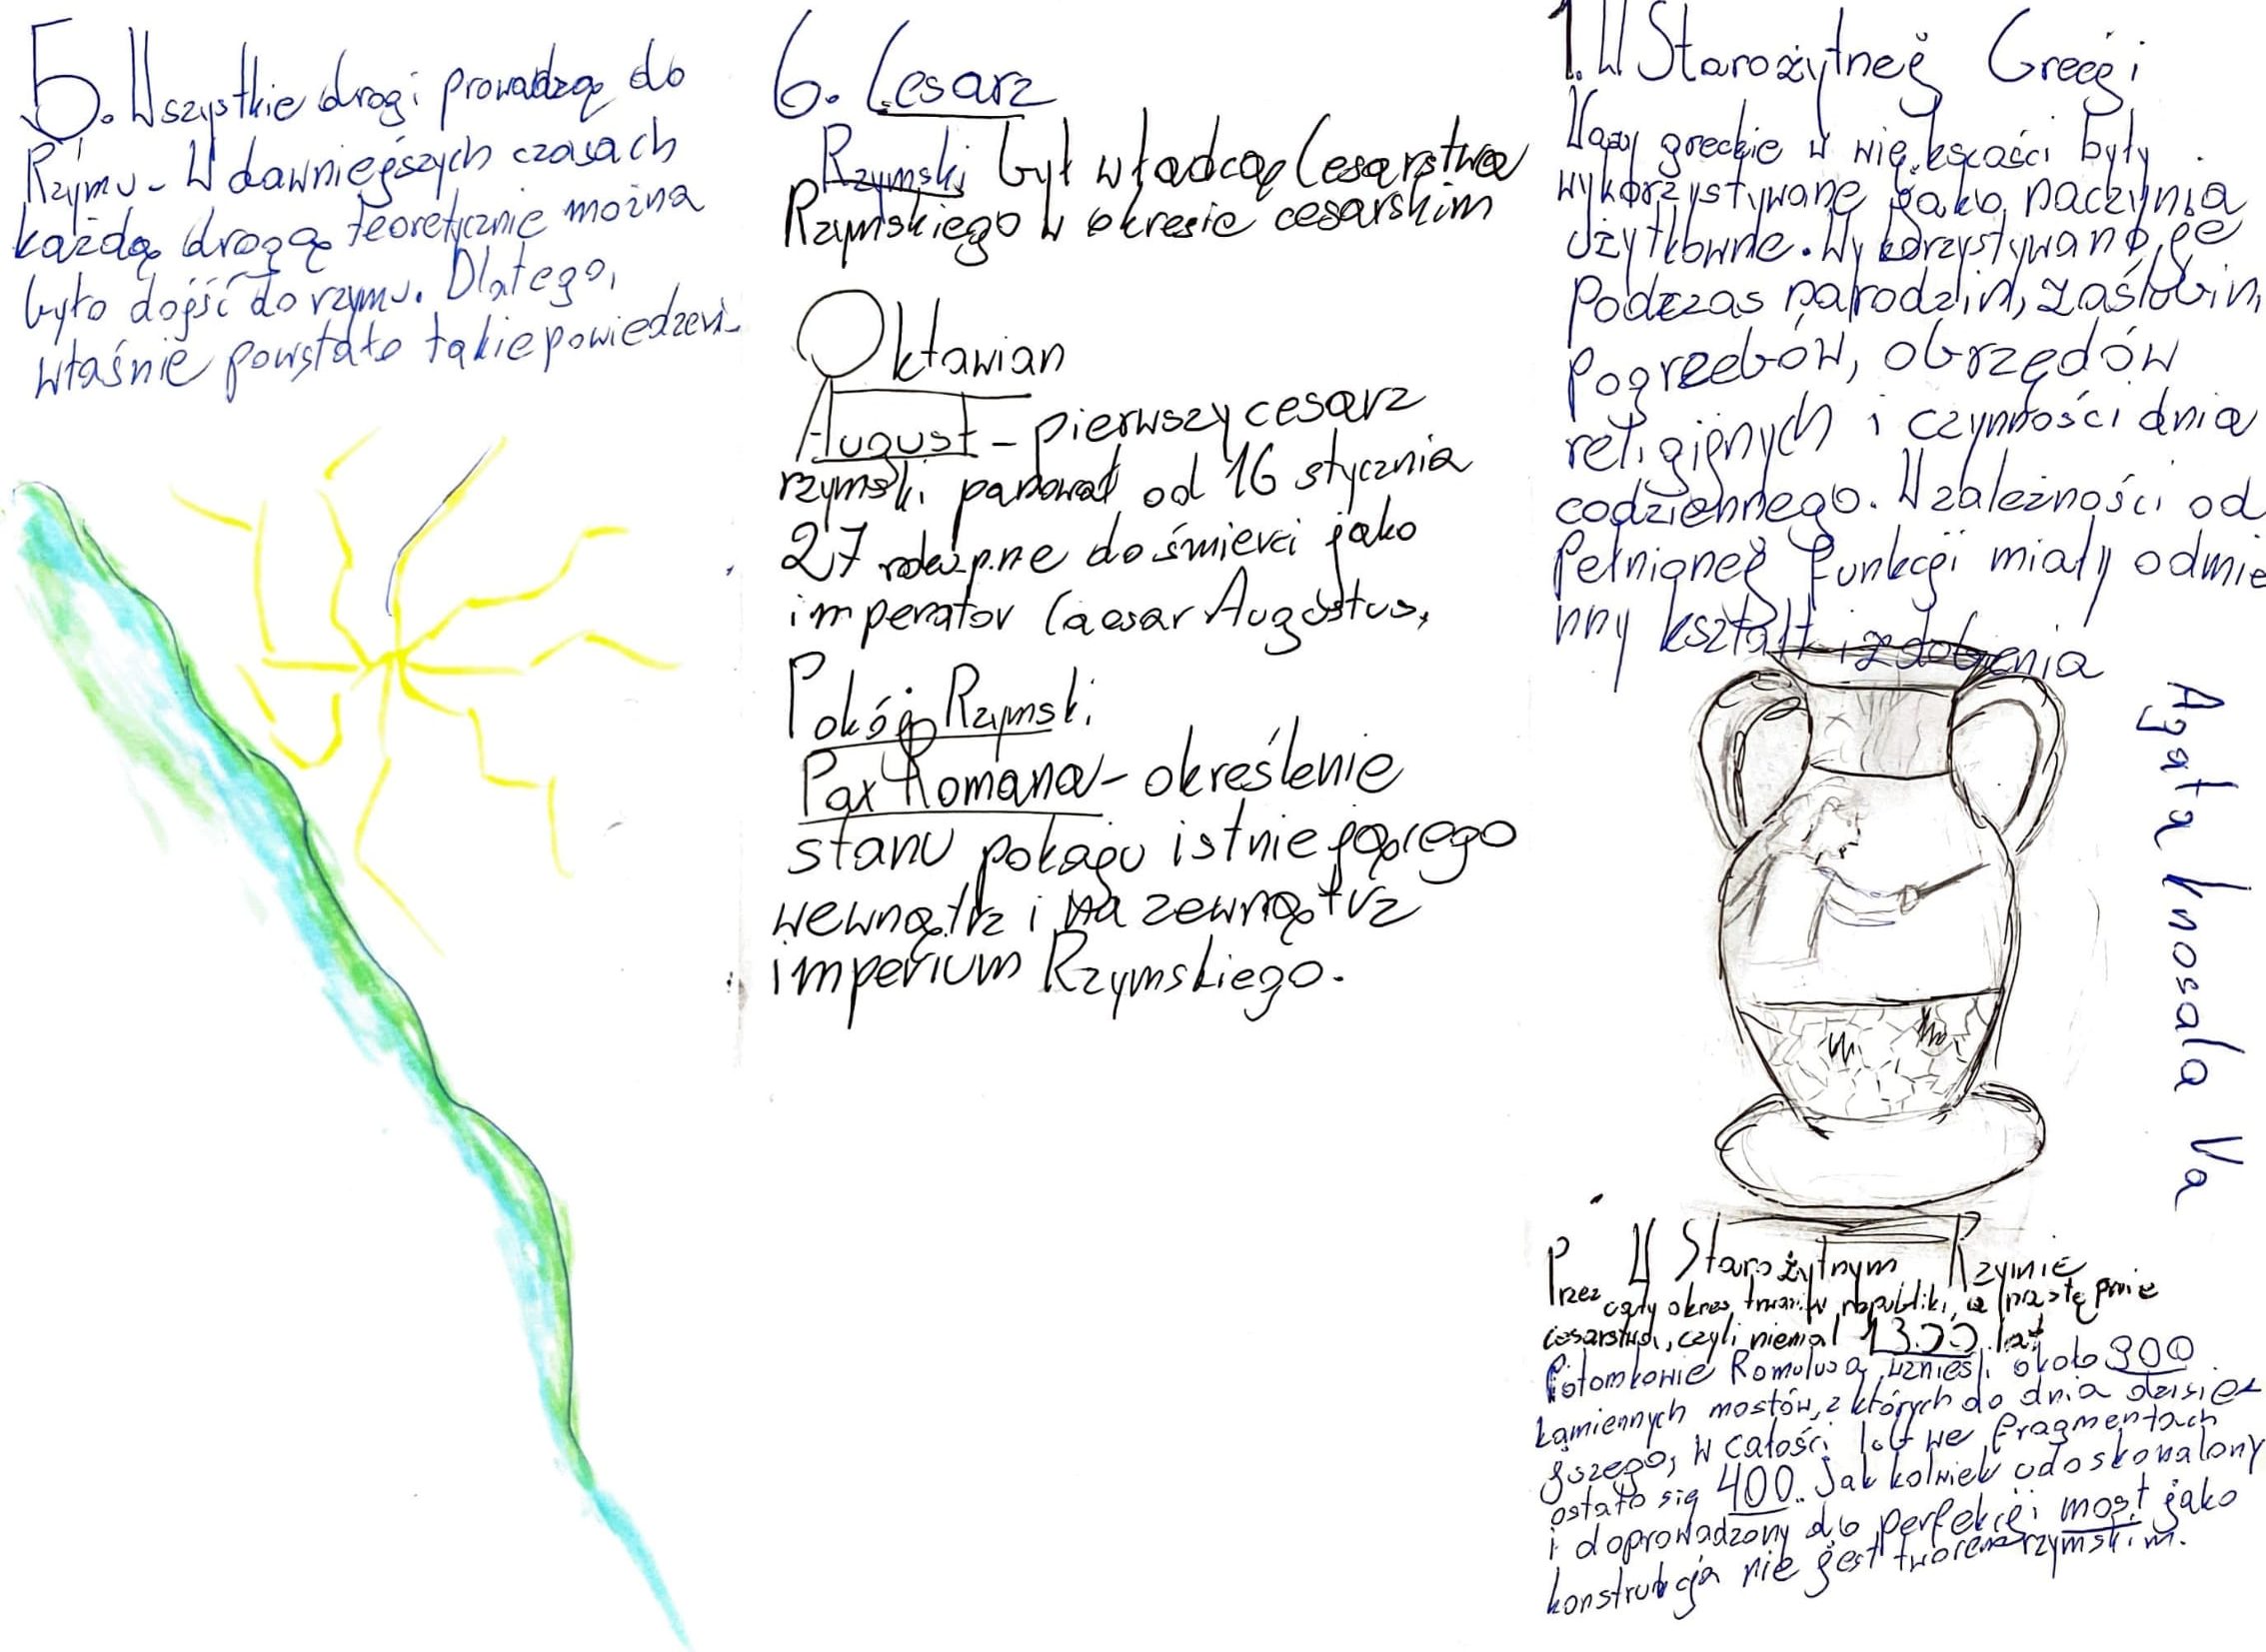 5. Wszystkie drogi prowadzą do
Rzymu - W dawniejszych czasach
każdą drogą teoretycznie można
było dojść do rzymu. Dlatego,
właśnie powstało takie powiedzeni-
6. Cesarz
Rzymski był władcą Cesarstwa
Rzymskiego w okresie cesarskim
Oktawian
August - pierwszy cesarz
rzymski panował od 16 stycznia
27 p.n.e do śmierci jako
imperator Caesar Augustus,
Pokój Rzymski
Pax Romana - określenie
stanu pokaju istniejącego
wewnątrz i na zewnątrz
imperium Rzymskiego.
1. W Starożytnej Grecji
Wazy greckie w większości były
wykorzystywane jako naczynia
użytkowne. Wykorzystywano je
podczas narodzin, zaślubin,
pogrzebów, obrzędów
religijnych i czynności dnia
codziennego. W zależności od
pełnionej funkcji miały odmie
nny kształt i zdobienia
Agata Knosala Va
W Starożytnym Rzymie
Przez cały okres trwania republiki, a następnie
cesarstwa, czyli niemal 1300 lat
Potomkowie Romulusa wznieśli około 900
kamiennych mostów, z których do dnia dzisie
jszego, w całości lub we fragmentach
ostało się 400. Jakkolwiek udoskonalony
i doprowadzony do perfekcji most jako
konstrukcja nie jest tworem rzymskim.